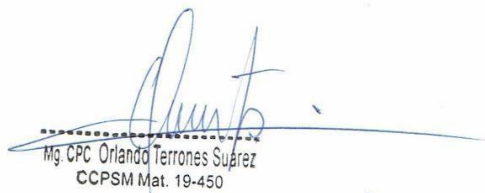 Mg. CPC Orlando Terrones Suárez
CCPSM Mat. 19-450